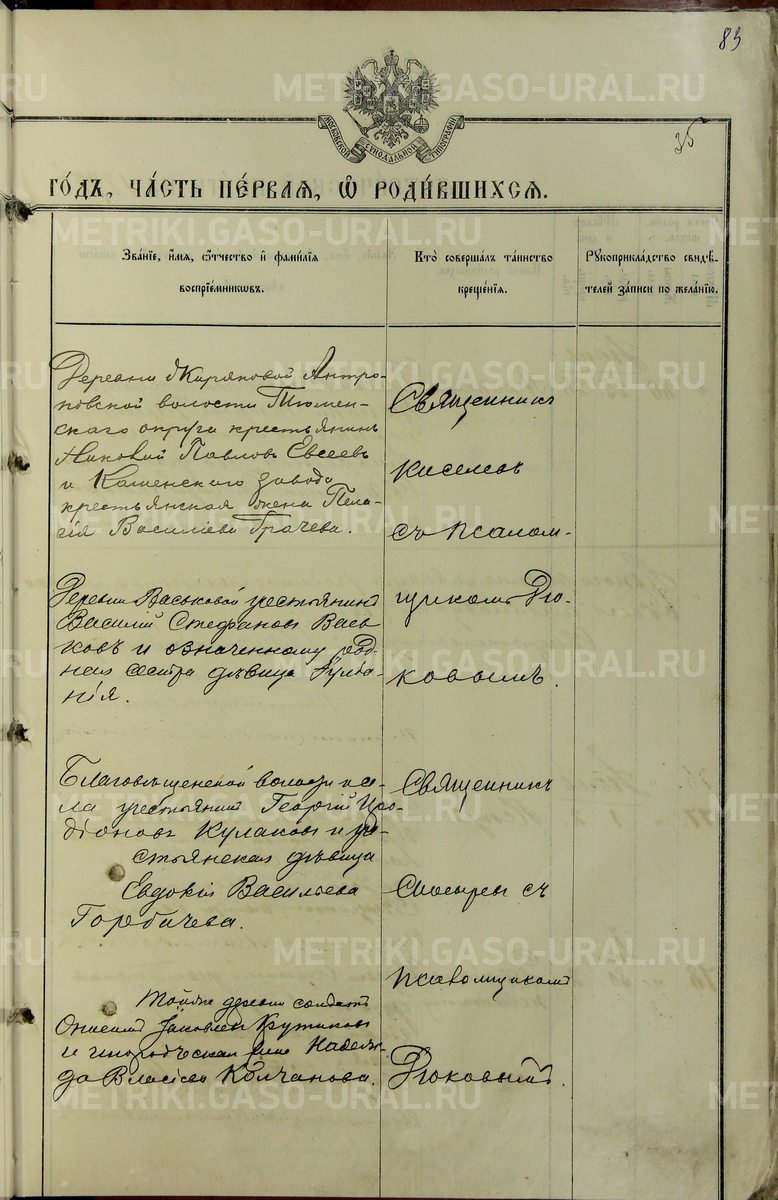 83
35
МОСКОВСКОЙ СѴНОДАЛЬНОЙ ТИПОГРАФІИ
ГО́ДЪ, ЧА́СТЬ ПЕ́РВАЯ, Ѡ҆ РОДИ́ВШИХСЯ.
Зва́нїе, и҆́мя, ѻ҆́тчество и҆ фами́лїя
воспрїе́мниковъ.
Кто̀ соверша́лъ та́инство
креще́нїя.
Рꙋкоприкла́дство свидѣ́-
телей за́писи по жела́нїю.
Деревни Жиряковой Антро-
повской волости Тюмен-
скаго округа крестьянинъ
Павловъ Евсеевъ
и Каменскаго завода
крестьянская жена Пела-
гія Василіева Грачева.
Священникъ
Киселевъ
съ псалом-
щикомъ Дю-
ковымъ.
Деревни Васьковой крестьянинъ
Василій Стефановъ Вась-
ковъ и означенному род-
ная сестра дѣвица Іулiа-
нія.
Благовѣщенской волости и се-
ла крестьянинъ Георгій Иро-
діоновъ Кулаковъ и кре-
стьянская дѣвица
Евдокія Васильева
Горбачева.
Священникъ
съ
псаломщикомъ
Дюковымъ.
Тойже деревни солдатъ
Яковлевъ
и жена Надеж-
да Власіева Колчанова.
METRIKI.GASO-URAL.RU